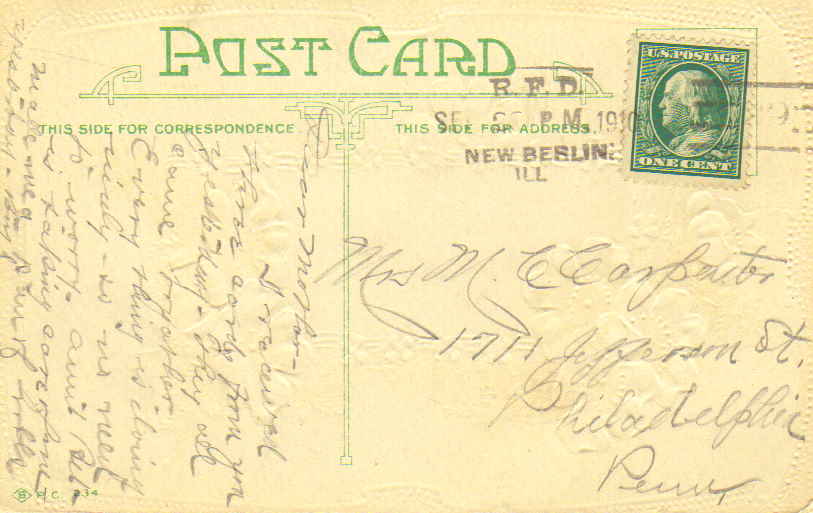 POST CARD
THIS SIDE FOR CORRESPONDENCE
THIS SIDE FOR ADDRESS
R.F.D.
SEP P.M. 1910
NEW BERLIN
ILL
U.S. POSTAGE
ONE CENT
Mrs M. E Carpenter
1711 Jefferson St.
Philadelphia
Penn,
Dear Mother-
I received
three cards from you
yesterday- they all
came together
Every thing is doing
nicely- so no need
to worry- aunt Bel-
is taking care of me
made me a
yesterday-
P.C. 234